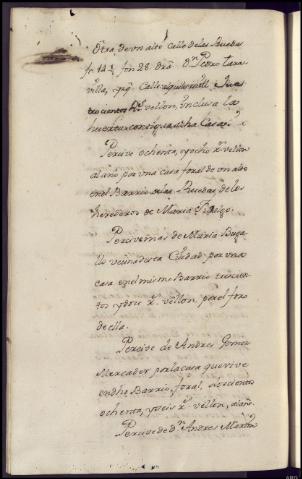 Otra, de un alto calle de las Ruedas
fr 14½ fon 28. dra. Dn. Pedro Tava
villa, yzq. Calle
Rs. vellon, inclusa la
huerta contigua a dha Casa.
Percive ochenta, y ocho rs. vellon
al año por una casa foral de un alto
en el Barrio Ruedas, de los
herederos de Maria Fidalgo.
Percive mas de Maria Buga
llo vecina desta Ciudad, por una
casa en el mismo Barrio trescien
tos y tres rs. vellon, por el foro
de ella.
Percive de Andres Gomez
Mercader, por la casa que vive
en dho Barrio, foral, doscientos
ochenta, y seis rs. vellon, al año.
Percive de Dn. Andres Martin